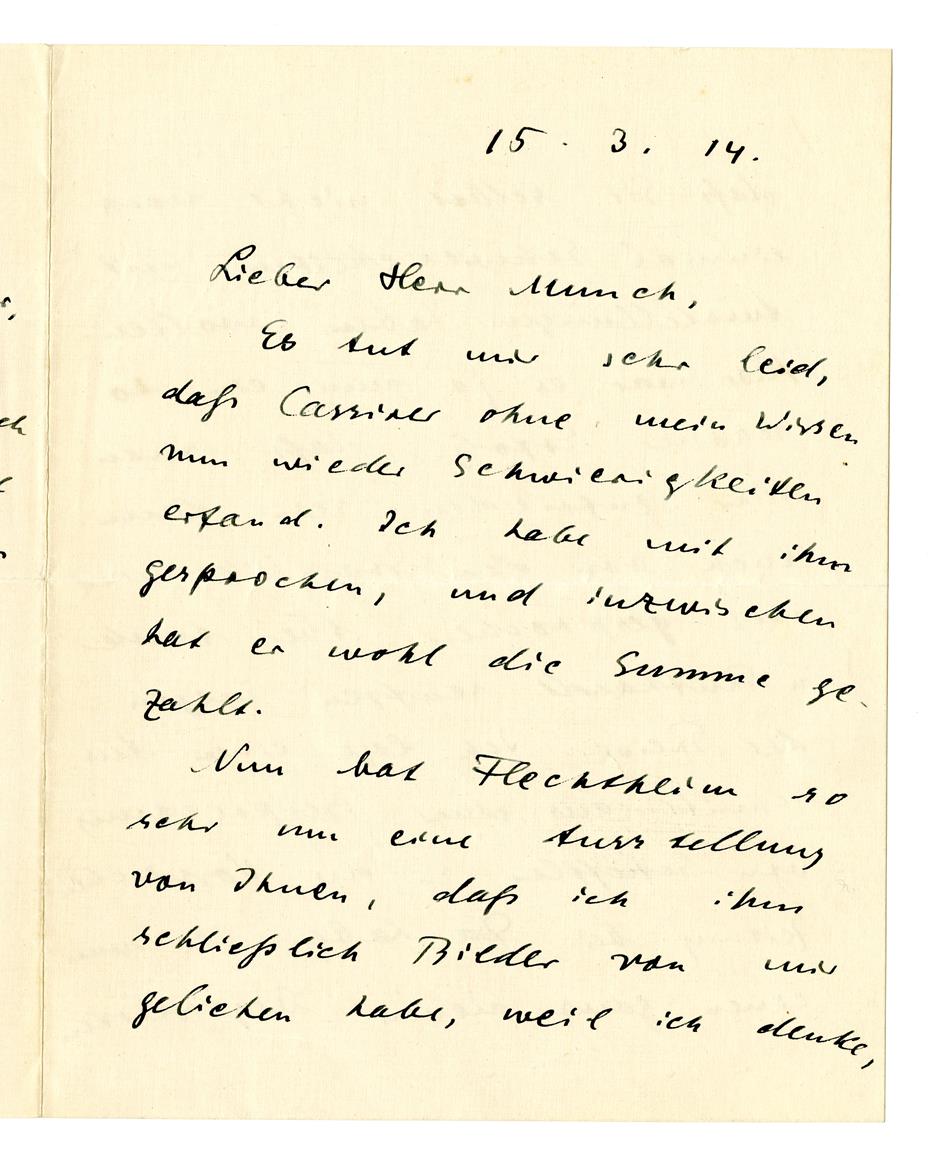 15. 3. 14.
Lieber Herr Munch,
Es tut mir sehr leid,
daß Cassirer ohne mein Wissen
nun wieder Schwierigkeiten
erfand. Ich habe mit ihm
gesprochen, und inzwischen
hat er wohl die Summe ge-
zahlt.
Nun bat Flechtheim so
sehr um eine Ausstellung
von Ihnen, daß ich ihm
schließlich Bilder von mir
geliehen habe, weil ich denke,